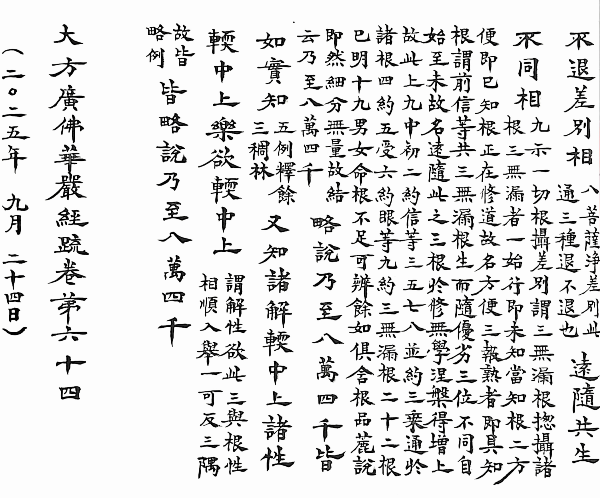 不退差別相 八菩薩淨差別此
通三種退不退也 遠隨共生
不同相 九示一切根攝差別謂三無漏根揔攝諸
根三無漏者一始行即未知當知根二方
便即已知根正在修道故名方便三報熟者即具知
根謂前信等共三無漏根生而隨優劣三位不同自
始至未故名遠隨此之三根於修無學涅槃得增上
故此上九中初二約信等三五七八並約三乘通於
諸根四約五受六約眼等九約三無漏根二十二根
已明十九男女命根不足可辨餘如俱舍根品麁說
即然細分無量故結
云乃至八萬四千 略說乃至八萬四千皆
如實知 五例釋餘
三稠林 又知諸解輭中上諸性
輭中上樂欲輭中上 謂解性欲此三與根性
相順入舉一可反三隅
故皆
略例 皆略說乃至八萬四千
大方廣佛華嚴經疏卷第六十四
（二○二五年 九月 二十四日）